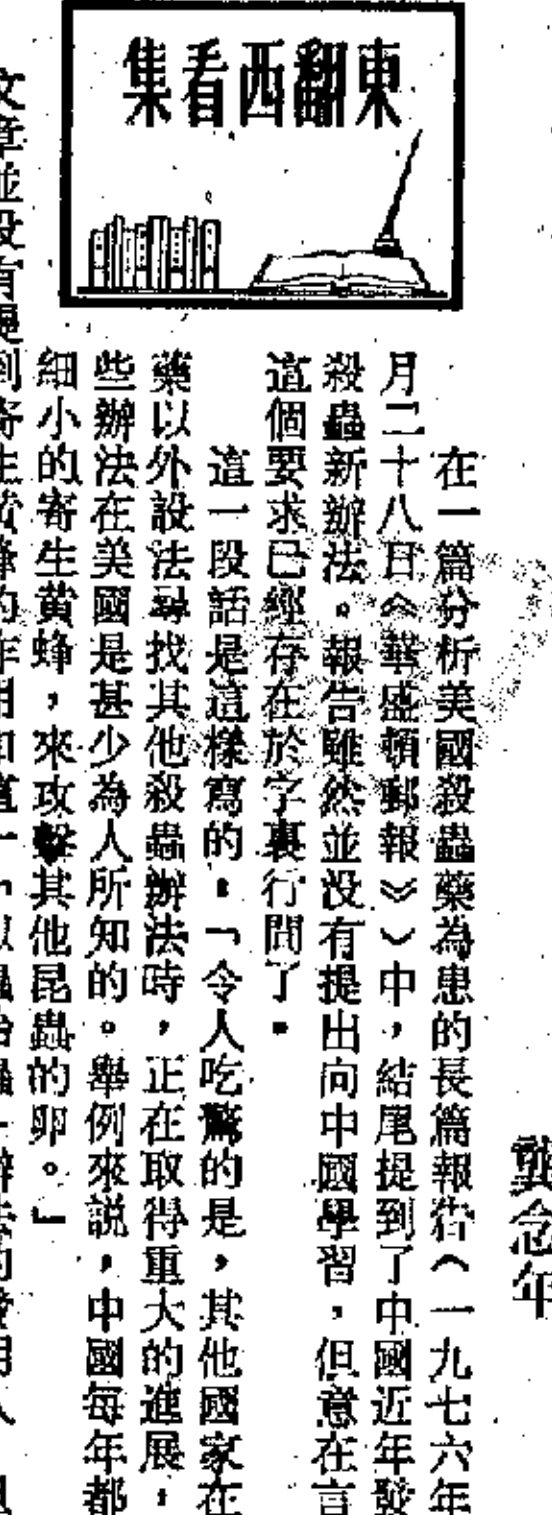 東翻西看集
龔念年
在一篇分析美國殺蟲藥為患的長篇報告(一九七六年
月二十八日《華盛頓郵報》)中,結尾提到了中國近年發
殺蟲新辦法。報告雖然並没有提出向中國學習,但意在言
這個要求已經存在於字裏行間了。
這一段話是這樣寫的:「令人吃驚的是,其他國家在
藥以外設法尋找其他殺蟲辦法時,正在取得重大的進展,
些辦法在美國是甚少為人所知的。舉例來説,中國每年都
細小的寄生黄蜂,來攻擊其他昆蟲的卵。」
文章並没有提到寄生黄蜂的作用